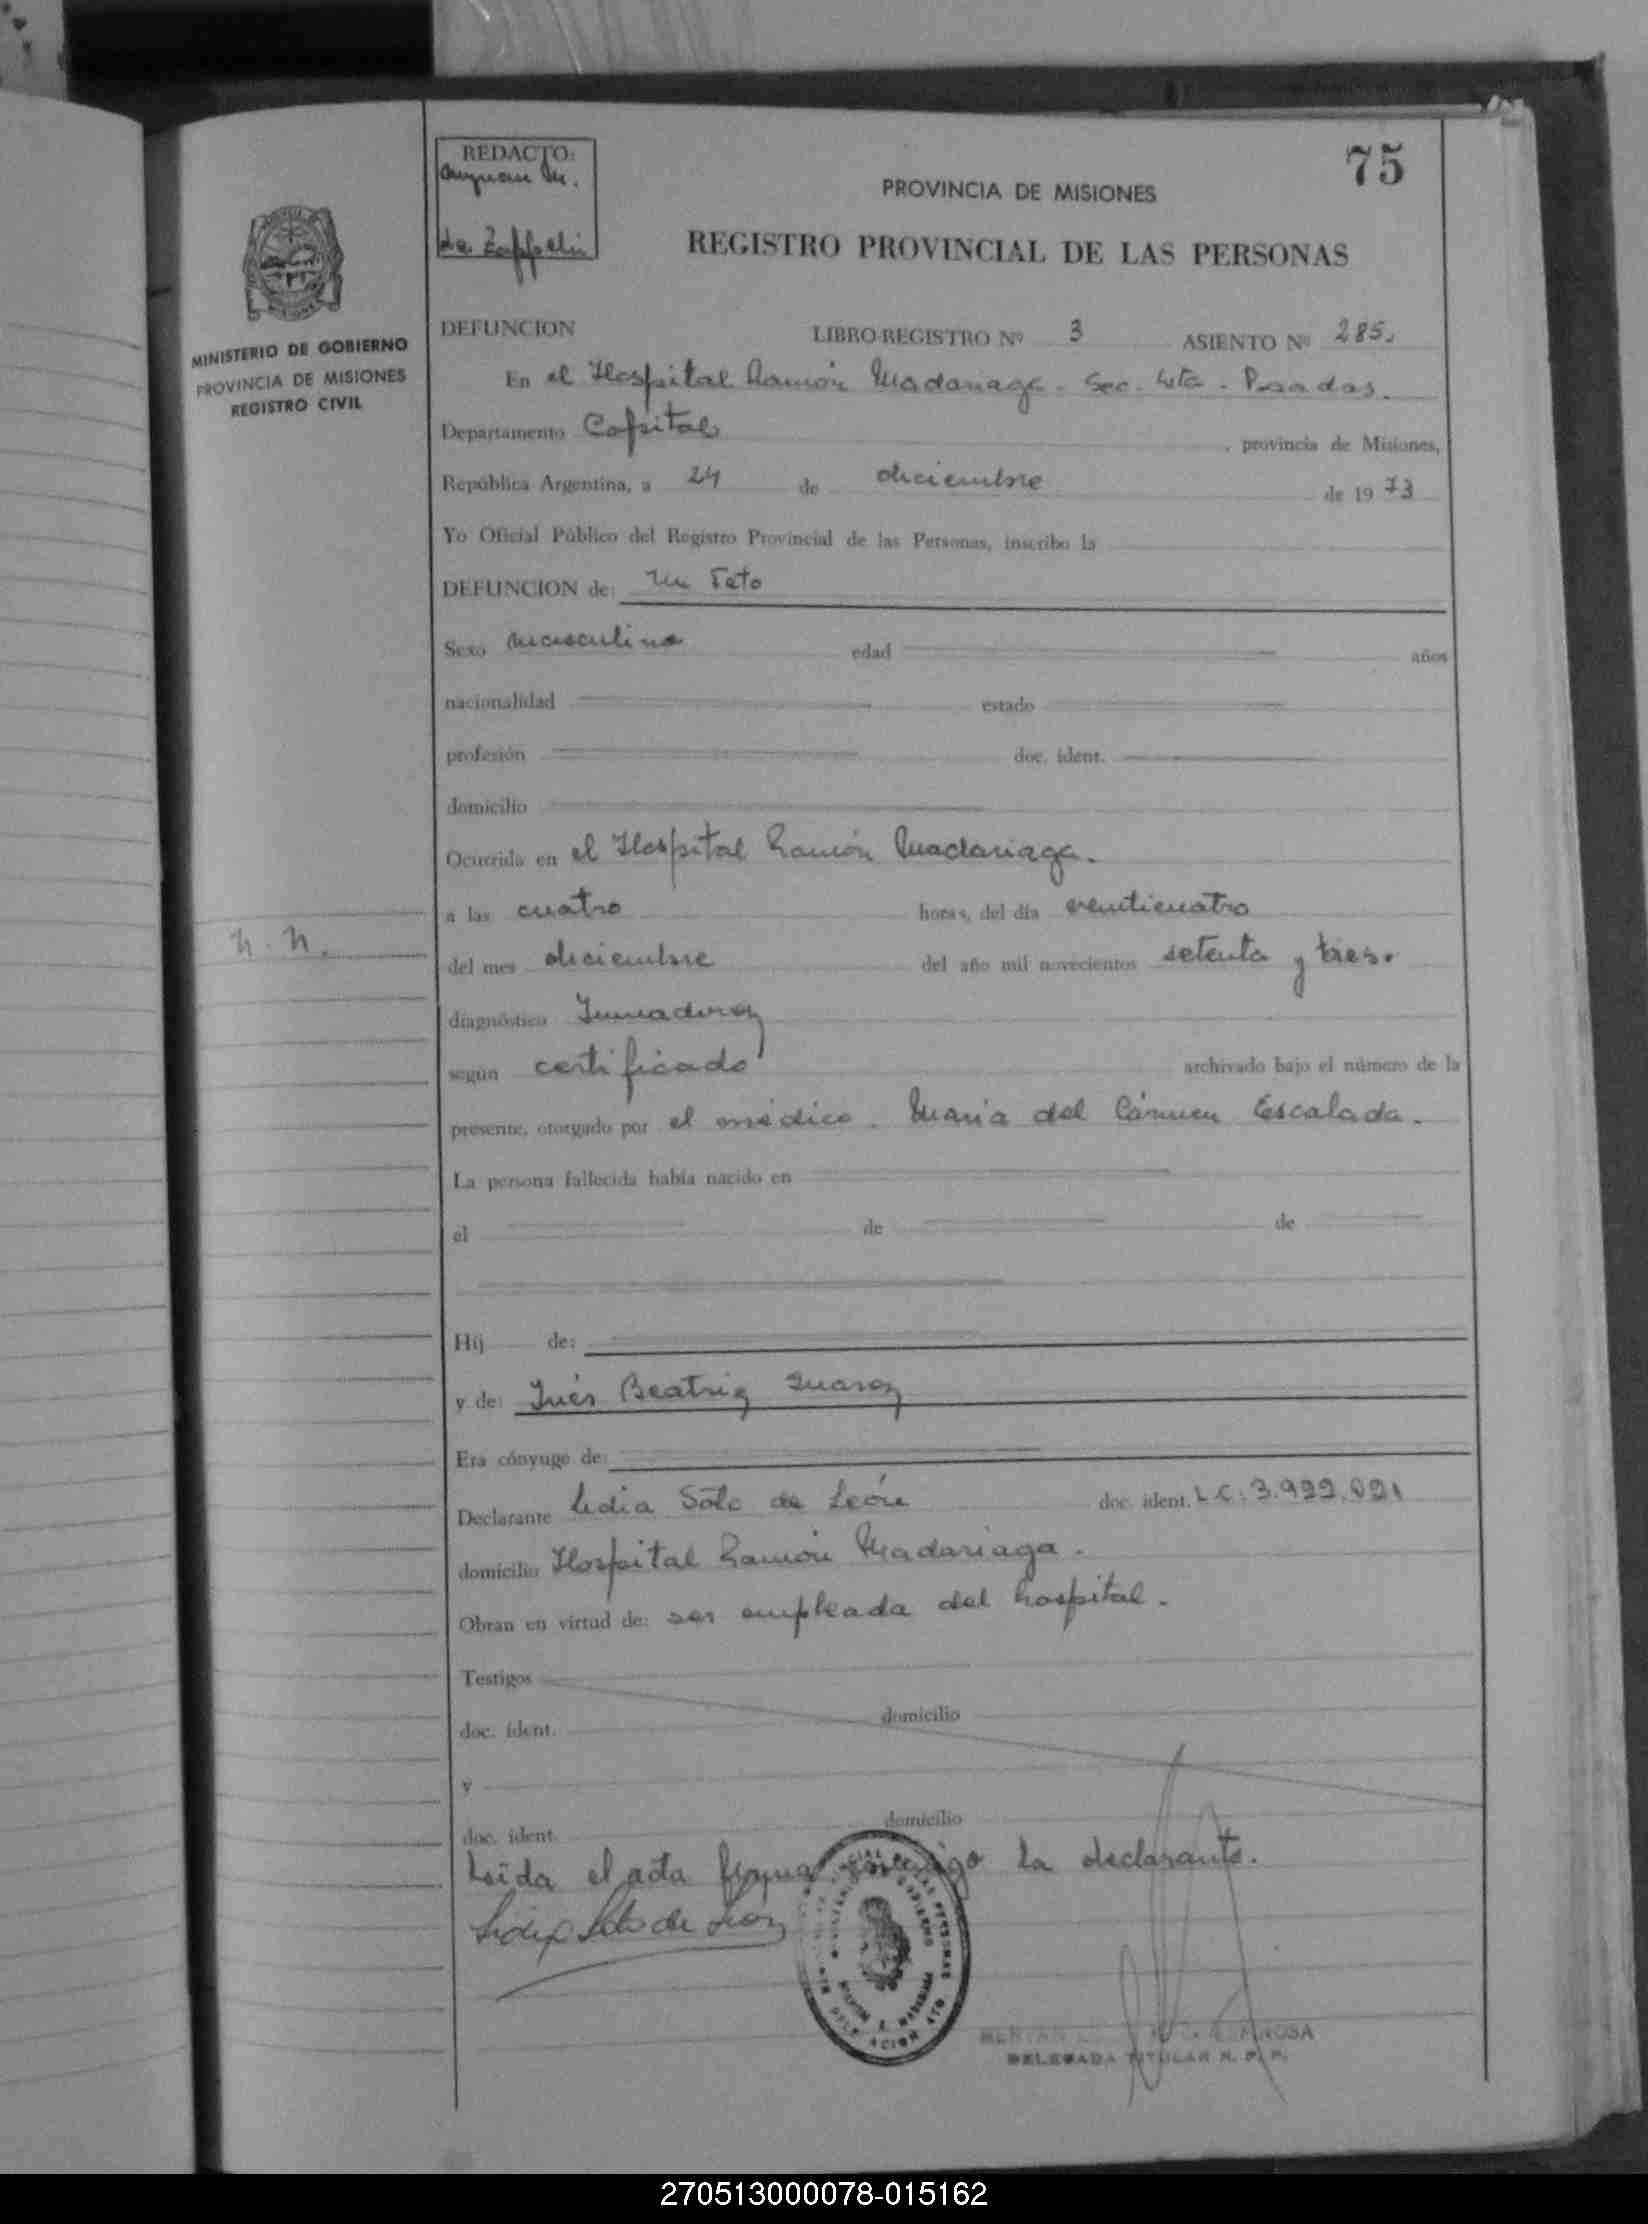 75
REDACTO:
de Zappelin
PROVINCIA DE MISIONES
REGISTRO PROVINCIAL DE LAS PERSONAS
MINISTERIO DE GOBIERNO
PROVINCIA DE MISIONES
REGISTRO CIVIL
DEFUNCION LIBRO-REGISTRO Nº 3 ASIENTO Nº 285.
En el Hospital Ramón Madariaga - Sec. 4ta - Posadas.
Departamento Capital, provincia de Misiones,
República Argentina, a 24 de diciembre de 1973
Yo Oficial Público del Registro Provincial de las Personas, inscribo la
DEFUNCION de: Un Feto
Sexo masculino edad años
nacionalidad estado
profesión doc. ident.
domicilio
Ocurrida en el Hospital Ramón Madariaga.
a las cuatro horas, del día veinticuatro
N. N.
del mes diciembre del año mil novecientos setenta y tres.
diagnóstico Inmadurez
según certificado archivado bajo el número de la
presente, otorgado por el médico. María del Cármen Escalada.
La persona fallecida había nacido en
el de de
Hij de:
y de: Inés Beatriz Suarez
Era cónyuge de:
Declarante Lidia Soto de León doc. ident. L.C: 3.999.091
domicilio Hospital Ramón Madariaga.
Obran en virtud de: ser empleada del hospital.
Testigos
doc. ident. domicilio
y
doc. ident. domicilio
Leída el acta firma conmigo la declarante.
Lidia Soto de León
DELEGADA TITULAR R. P. P.
270513000078-015162